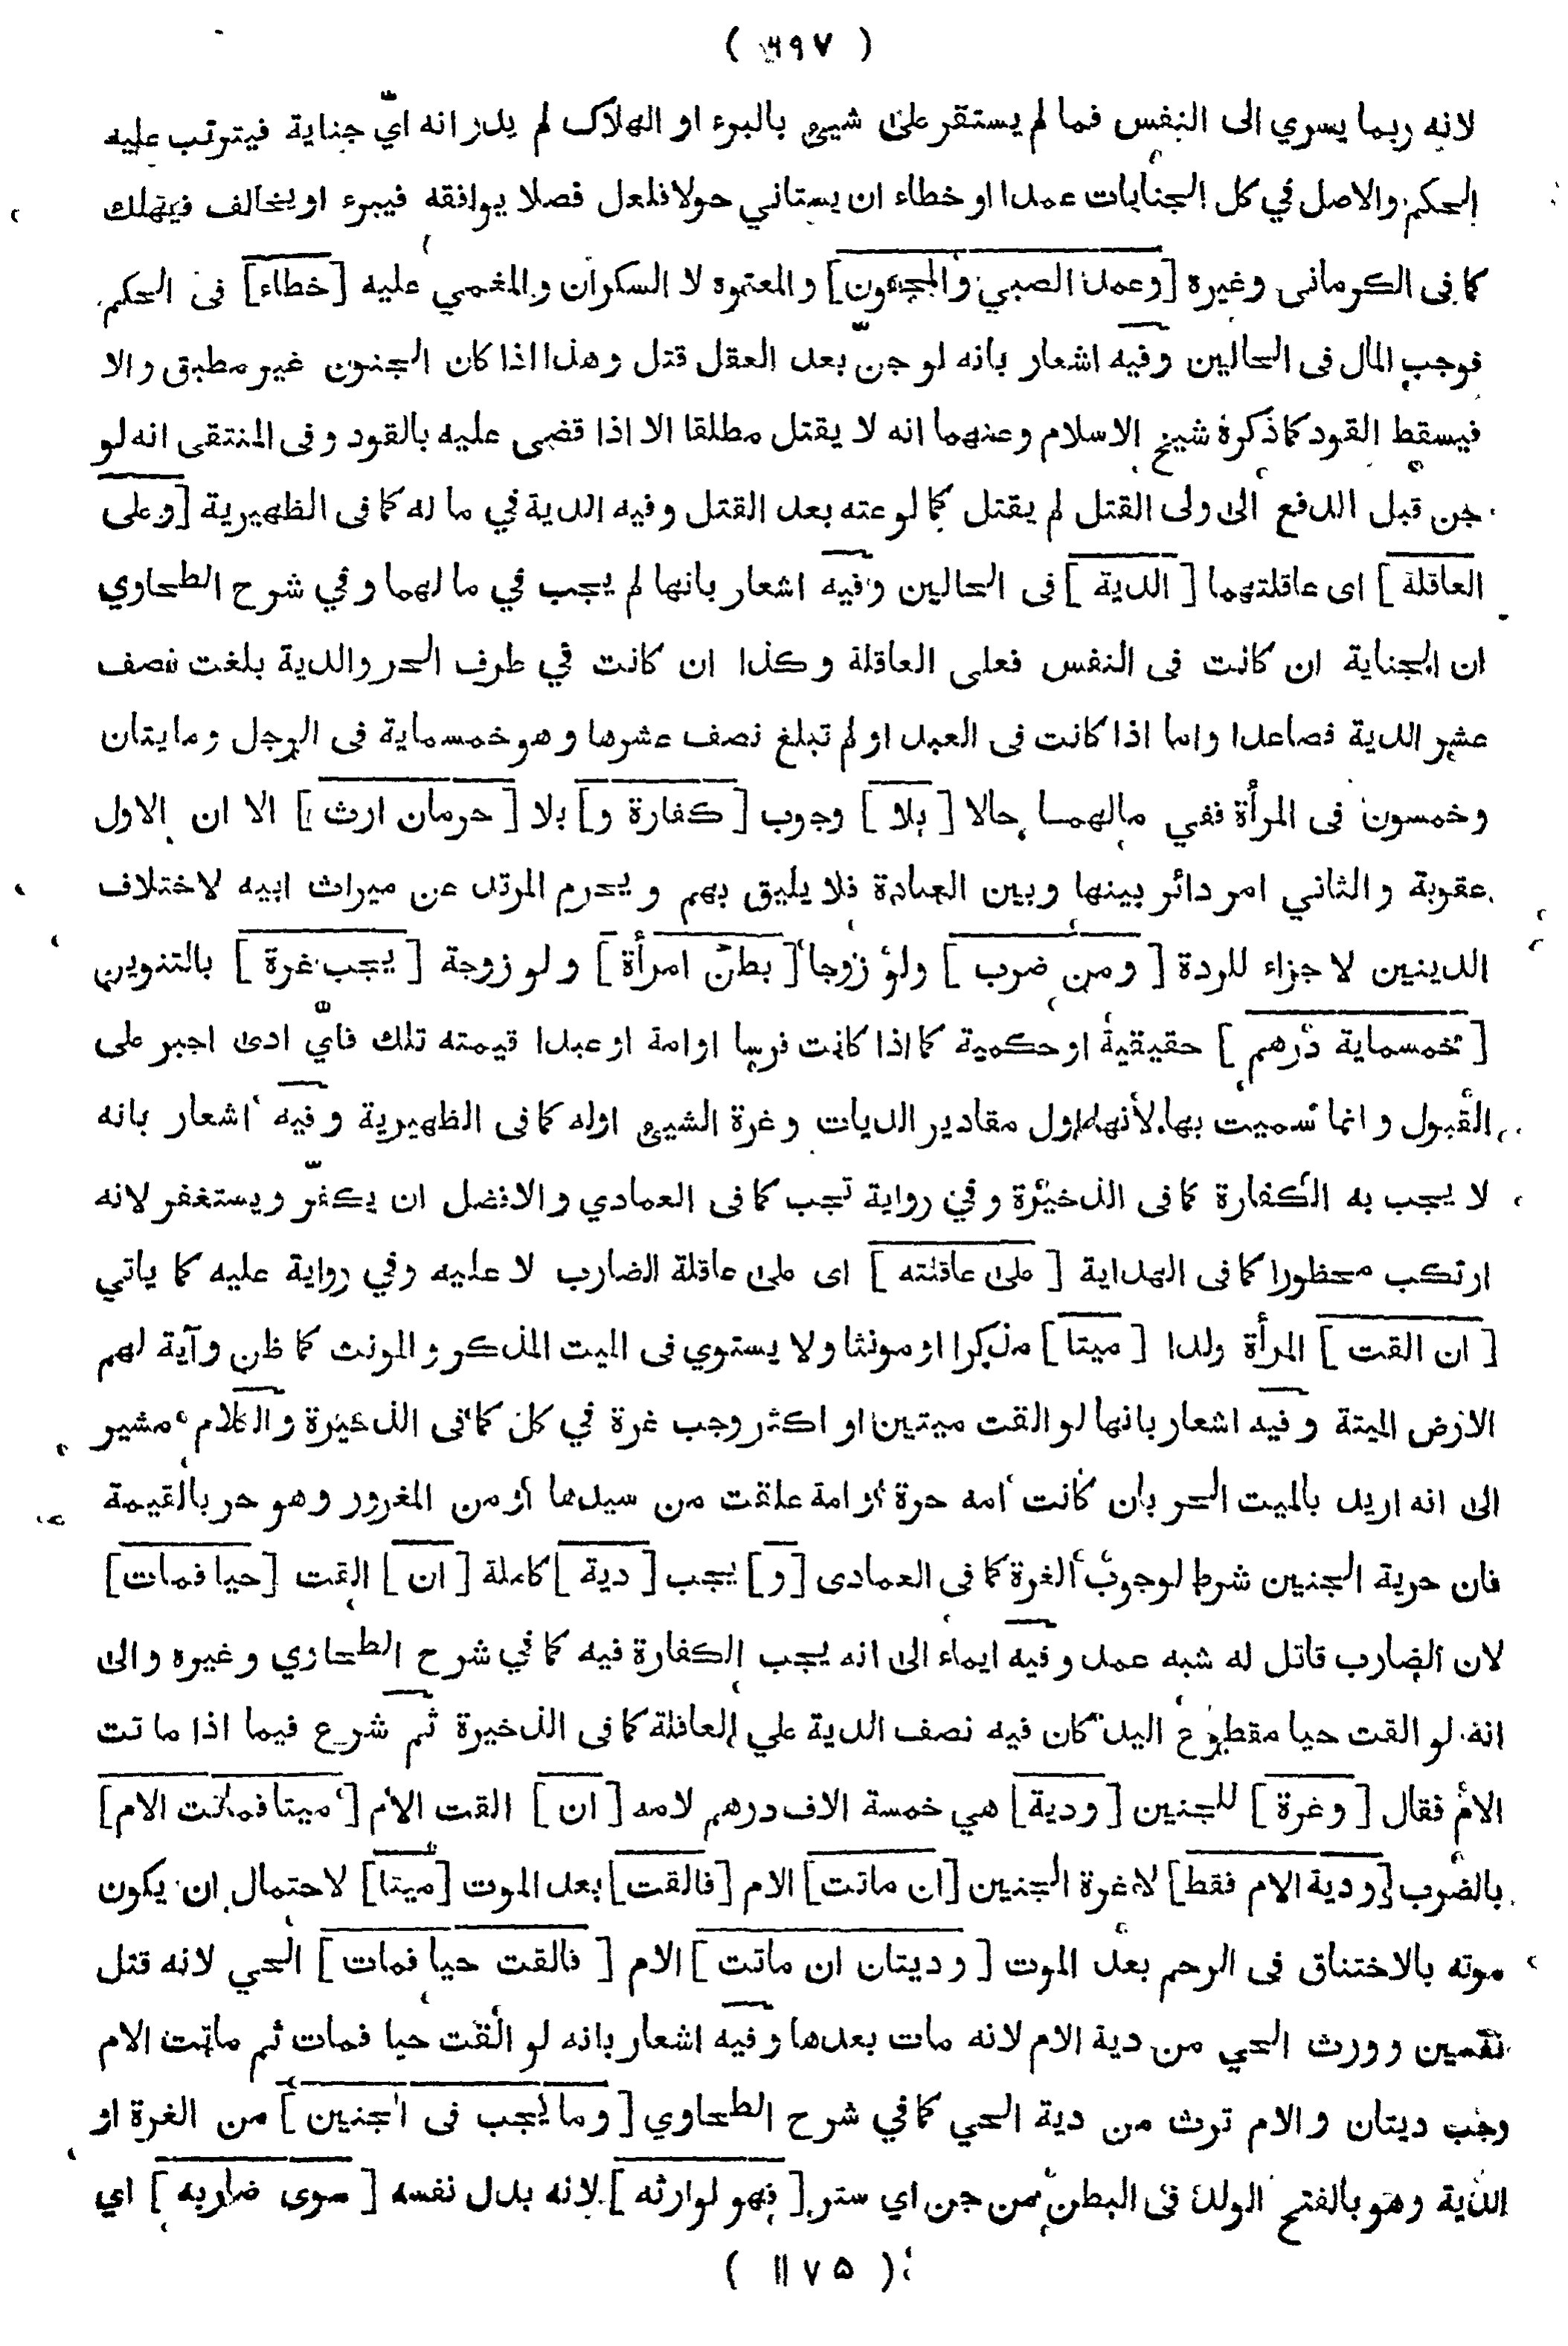 ( ٦٩٧ )
لانه ربما يسري الى النفس فما لم يستقر على شيء بالبرء او الهلاك لم يدر انه ايّ جناية فيترتب عليه
الحكم والاصل في كل الجنايات عمدا او خطاء ان يستاني حولا فلعل فصلا يوافقه فيبرء او يخالف فيهلك
كما فى الكرمانى وغيره [وعمد الصبي والمجنون] والمعتوه لا السكران والمغمي عليه [خطاء] فى الحكم
فوجب المال فى الحالين وفيه اشعار بانه لو جنّ بعد العقل قتل وهذا اذا كان الجنون غير مطبق والا
فيسقط القود كما ذكره شيخ الاسلام وعنهما انه لا يقتل مطلقا الا اذا قضى عليه بالقود وفى المنتقى انه لو
جن قبل الدفع الى ولى القتل لم يقتل كما لو عته بعد القتل وفيه الدية في ماله كما فى الظهيرية [وعلى
العاقلة] اى عاقلتهما [الدية] فى الحالين وفيه اشعار بانها لم يجب في مالهما وفي شرح الطحاوي
ان الجناية ان كانت فى النفس فعلى العاقلة وكذا ان كانت في طرف الحر والدية بلغت نصف
عشر الدية فصاعدا واما اذا كانت فى العبد او لم تبلغ نصف عشرها وهو خمسماية فى الرجل ومايتان
وخمسون فى المرأة ففي مالهما حالا [بلا] وجوب [كفارة و] بلا [حرمان ارث] الا ان الاول
عقوبة والثاني امر دائر بينها وبين العبادة فلا يليق بهم ويحرم المرتد عن ميراث ابيه لاختلاف
الدينين لا جزاء للردة [ومن ضرب] ولو زوجا [بطن امرأة] ولو زوجة [يجب غرة] بالتنوين
[خمسماية درهم] حقيقية او حكمية كما اذا كانت فرسا او امة او عبدا قيمته تلك فايّ ادى اجبر على
القبول وانما سميت بها لأنها اول مقادير الديات وغرة الشيء اوله كما فى الظهيرية وفيه اشعار بانه
لا يجب به الكفارة كما فى الذخيرة وفي رواية تجب كما فى العمادي والافضل ان يكفّر ويستغفر لانه
ارتكب محظورا كما فى الهداية [على عاقلته] اى على عاقلة الضارب لا عليه وفي رواية عليه كما ياتي
[ان القت] المرأة ولدا [ميتا] مذكرا او مونثا ولا يستوي فى الميت المذكر والمونث كما ظن وآية لهم
الارض الميتة وفيه اشعار بانها لو القت ميتين او اكثر وجب غرة في كل كما فى الذخيرة والكلام مشير
الى انه اريد بالميت الحر بان كانت امه حرة او امة علقت من سيدها او من المغرور وهو حر بالقيمة
فان حرية الجنين شرط لوجوب الغرة كما فى العمادى [و] يجب [دية] كاملة [ان] القت [حيا فمات]
لان الضارب قاتل له شبه عمد وفيه ايماء الى انه يجب الكفارة فيه كما في شرح الطحاوي وغيره والى
انه لو القت حيا مقطوع اليد كان فيه نصف الدية علي العاقلة كما فى الذخيرة ثم شرع فيما اذا ماتت
الام فقال [وغرة] للجنين [ودية] هي خمسة الاف درهم لامه [ان] القت الام [ميتا فماتت الام]
بالضرب [ودية الام فقط] لا غرة الجنين [ان ماتت] الام [فالقت] بعد الموت [ميتا] لاحتمال ان يكون
موته بالاختناق فى الرحم بعد الموت [وديتان ان ماتت] الام [فالقت حيا فمات] الحي لانه قتل
نفسين وورث الحي من دية الام لانه مات بعدها وفيه اشعار بانه لو القت حيا فمات ثم ماتت الام
وجب ديتان والام ترث من دية الحي كما في شرح الطحاوي [وما يجب فى الجنين] من الغرة او
الدية وهو بالفتح الولد فى البطن من جن اي ستر [فهو لوارثه] لانه بدل نفسه [سوى ضاربه] اي
( ١١٧٥ )